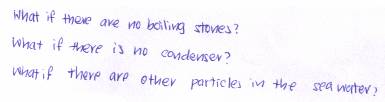 What if there are no boiling stones?
What if there is no condenser?
What if there are other particles in the sea water?